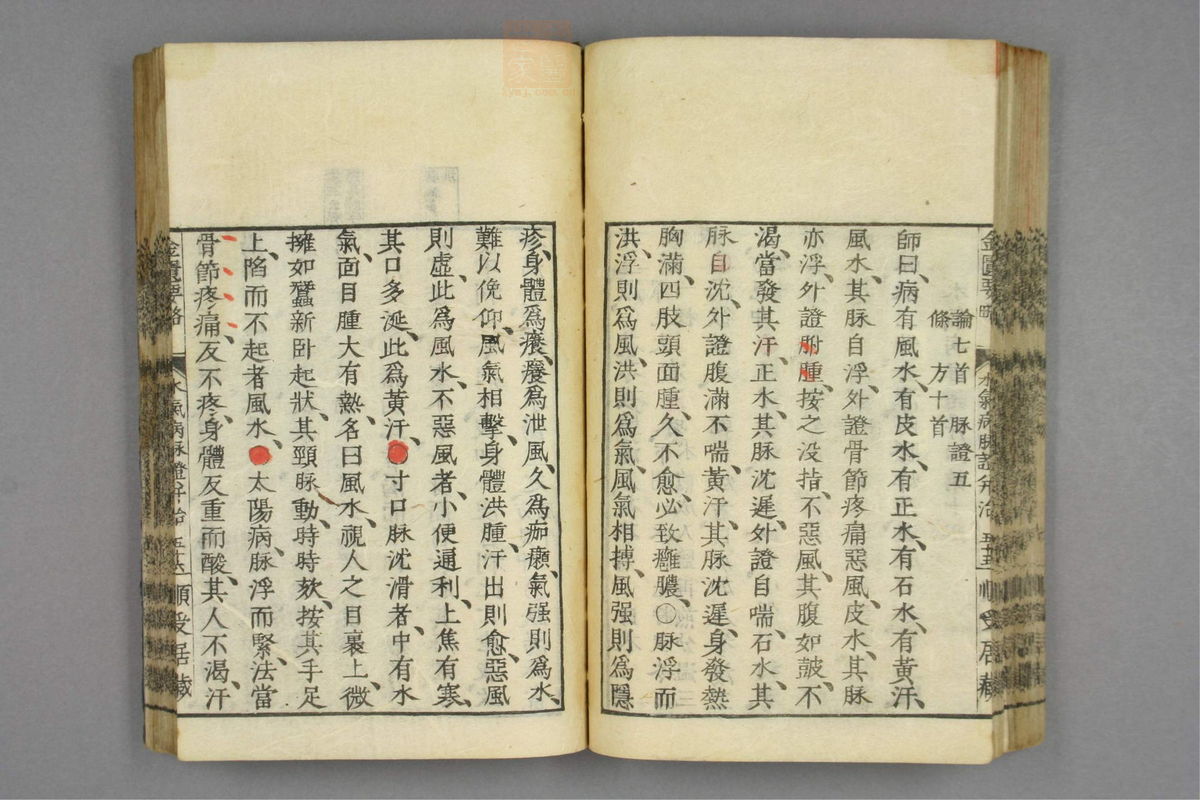 論七首　脉證五
條　方十首
師曰、病有風水、有皮水、有正水、有石水、有黃汗、
風水、其脉自浮、外證骨節疼痛惡風、皮水、其脉
亦浮、外證胕腫、按之没指、不惡風、其腹如鼓、不
渴、當發其汗、正水、其脉沈遲、外證自喘、石水、其
脉自沈、外證腹滿不喘、黃汗、其脉沈遲、身發熱
胸滿、四肢頭面腫、久不愈、必致癰膿、〇脉浮而
洪、浮則爲風、洪則爲氣、風氣相搏、風强則爲隱
疹、身體爲癢、癢爲泄風、久爲痂癩、氣强則爲水、
難以俛仰、風氣相擊、身體洪腫、汗出則愈、惡風
則虛、此爲風水、不惡風者、小便通利、上焦有寒、
其口多涎、此爲黃汗、〇寸口脉沈滑者、中有水
氣、面目腫大有熱、名曰風水、視人之目裹上、微
擁如蠶新卧起狀、其頸脉動、時時欬、按其手足
上、陷而不起者風水、〇太陽病、脉浮而緊、法當
骨節疼痛、反不疼、身體反重而酸、其人不渴、汗
金匱要略　水氣病脉證并治　五十六　順受居藏